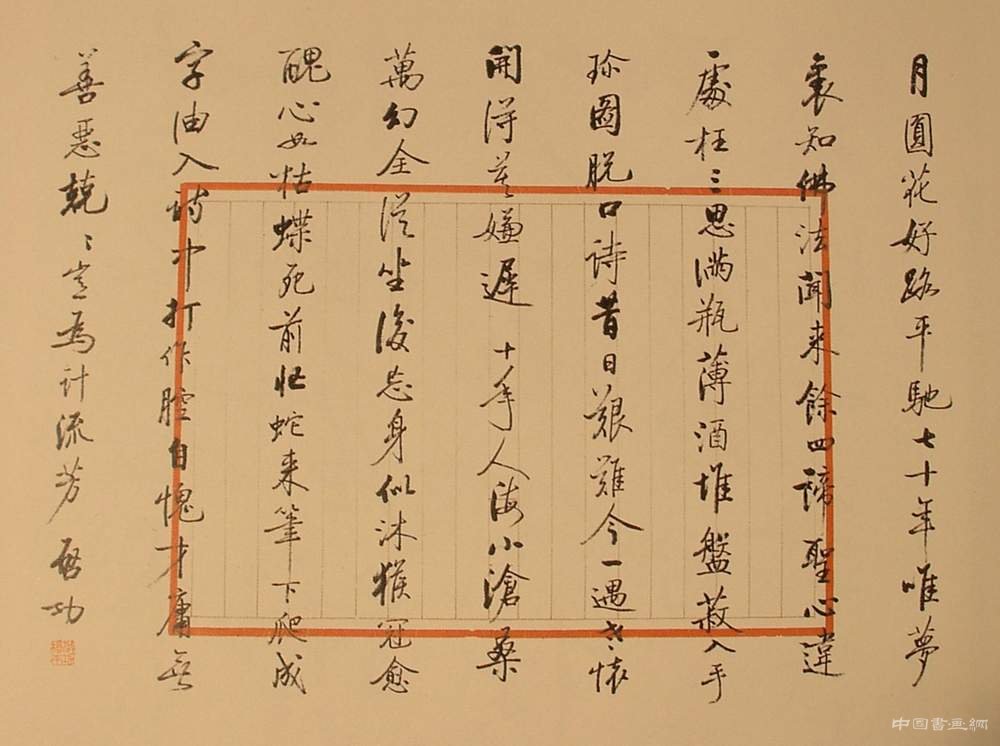 月圓花好路平馳七十年唯夢
裏知佛法聞来餘四諦聖心違
一處枉〻思滿瓶薄酒堆盤菽入手
珍圖脱口詩昔日艱難今一遇老懷
開得莫嫌遲 十年人海小滄桑
萬幻全從坐後忘身似沐猴冠愈
醜心如枯蝶死前忙蛇来筆下爬成
字油入詩中打作腔自愧才庸無
善惡兢〻豈為計流芳 啓功
中國書画網